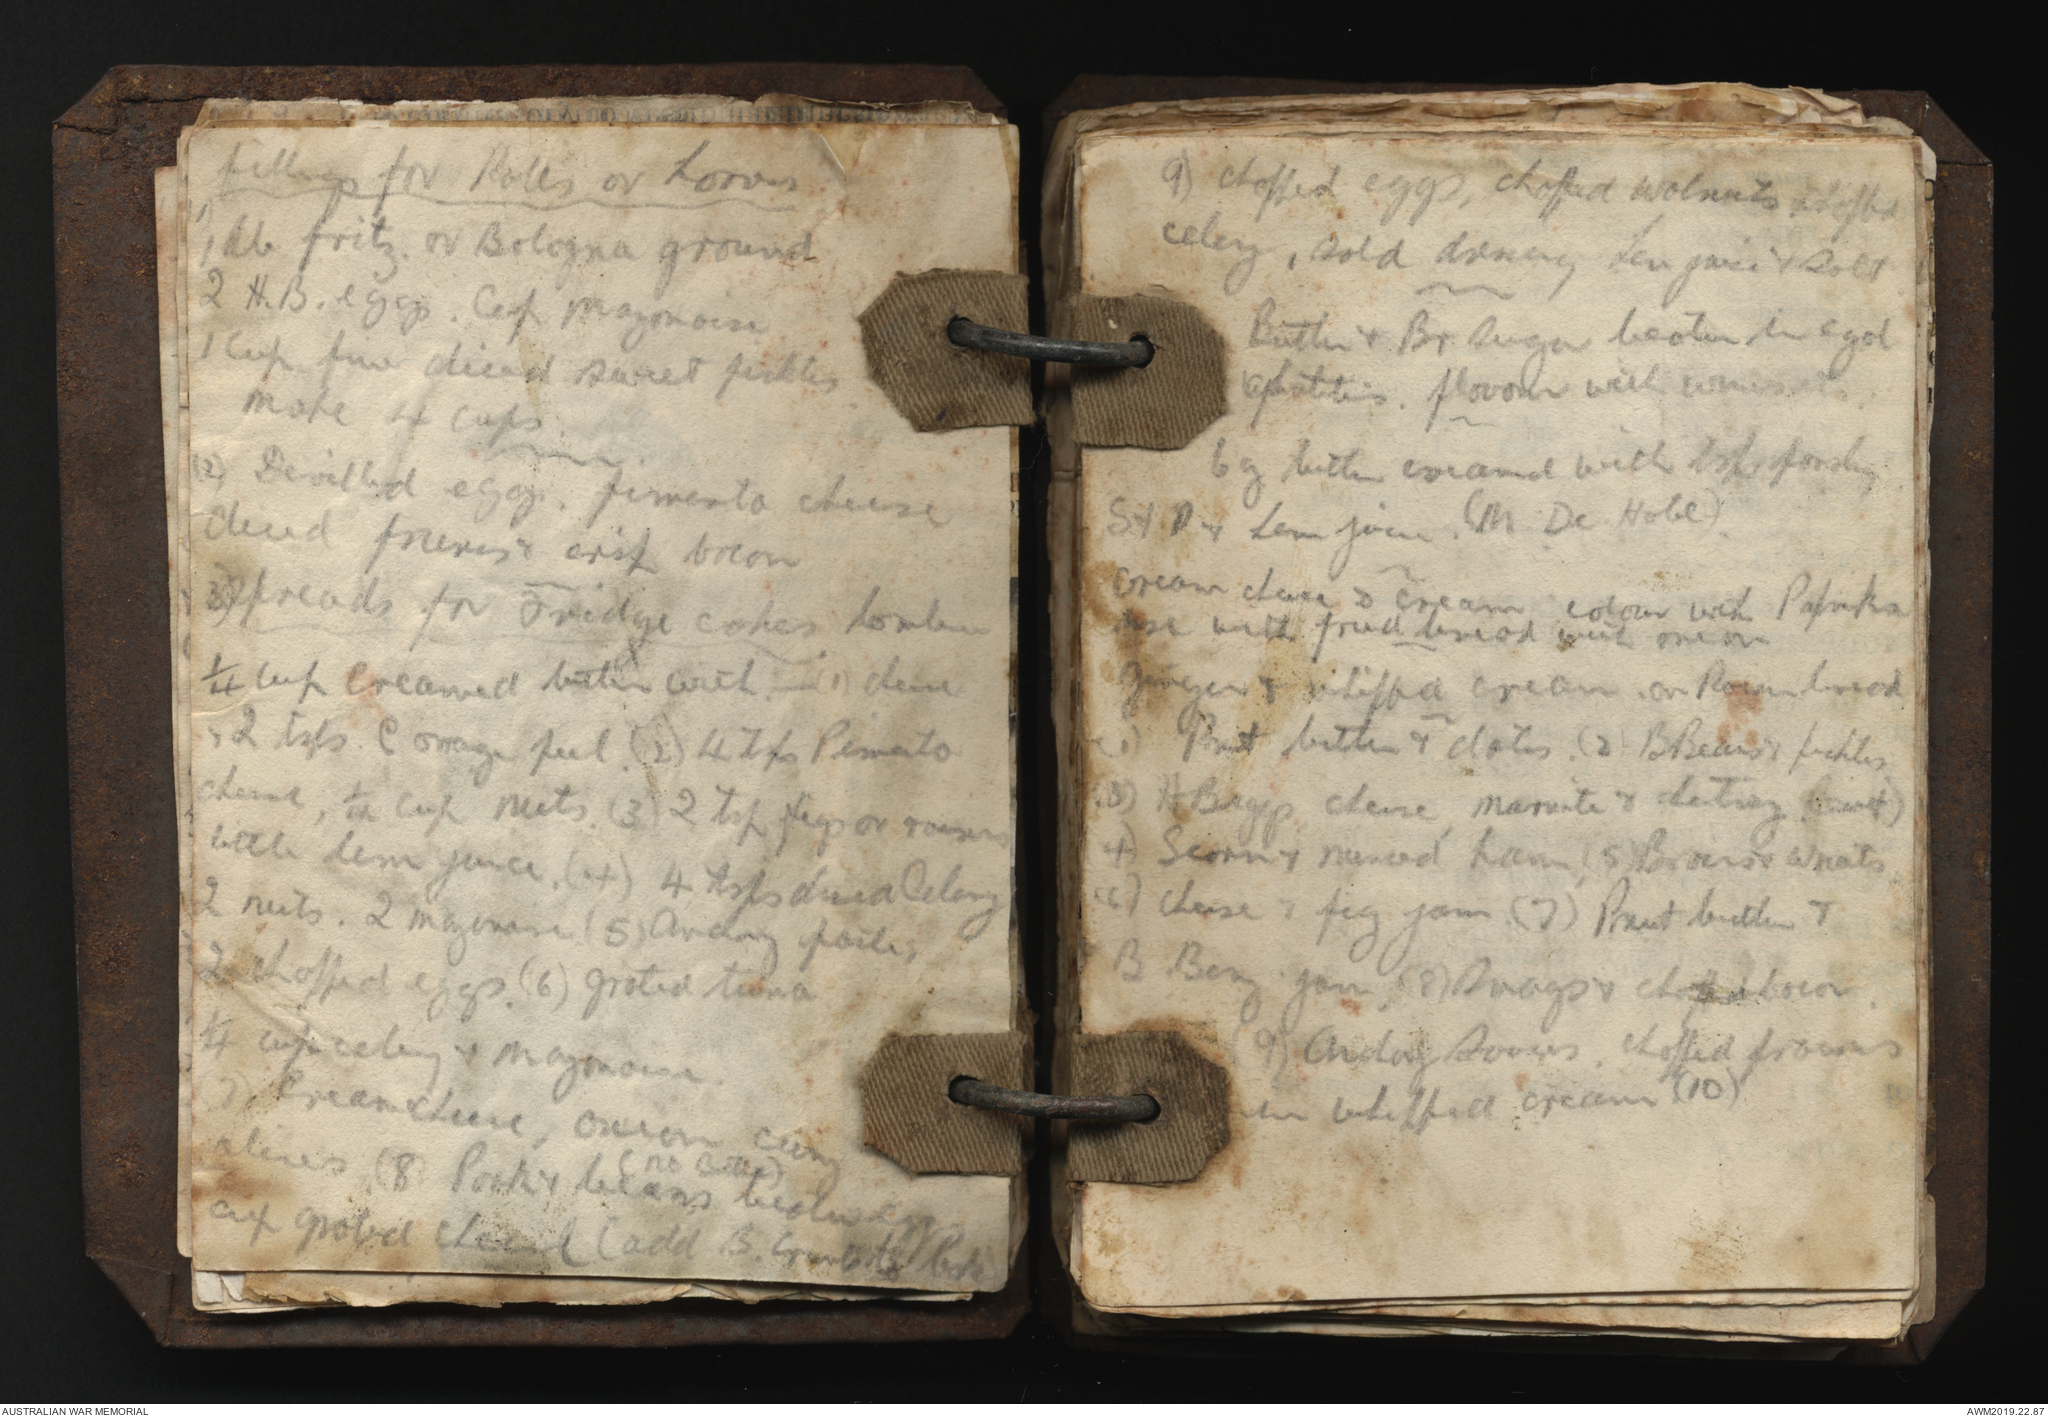 fillings for Rolls or Loaves
1) 1 lb fritz. or Bologna ground
2 H.B. eggs. Cup mayonaise
1 cup fine diced sweet pickles
make 4 cups.
(2) Devilled eggs. pimento cheese
diced & crisp bacon
3) Spreads for Fridge cakes Combine
1/4 cup creamed butter with — (1) cheese
2 tsps. C orange peel. (2) 4 tsps Pimato
cheese, 1/4 cup nuts. (3) 2 tsp figs or raisins
with lem juice. (4) 4 tsps diced Celery
2 nuts. 2 mayonaise (5) Anchovy paste
2 chopped eggs. (6) grated tuna
1/4 cup celery & mayonaise.
(7) Cream cheese, onion
olives (8 Pork & beans
cup grated cheese (add B. Crumbs
9) chopped eggs, chopped walnuts, chopped
celery, salad dressing Lem juice & salt
Butter & Br Sugar beaten in egd
. flavour with
6 oz butter creamed with tsps parsley
S & P & Lem juice. (M De Hobl).
Cream cheese & cream colour with Paprika
use with fried bread with onion
Ginger & whipped cream. on Raisin bread
(1) Pnut butter & dates. (2) B Beans & pickles
(3) H B eggs cheese, marmite & chutney
4) S corn & minced ham, (5)
(6) cheese & fig jam. (7) Pnut butter &
B Berry jam. (8) Snags & chopped bacon.
(9) , chopped prawns
in whipped cream (10)
AUSTRALIAN WAR MEMORIAL
AWM2019.22.87